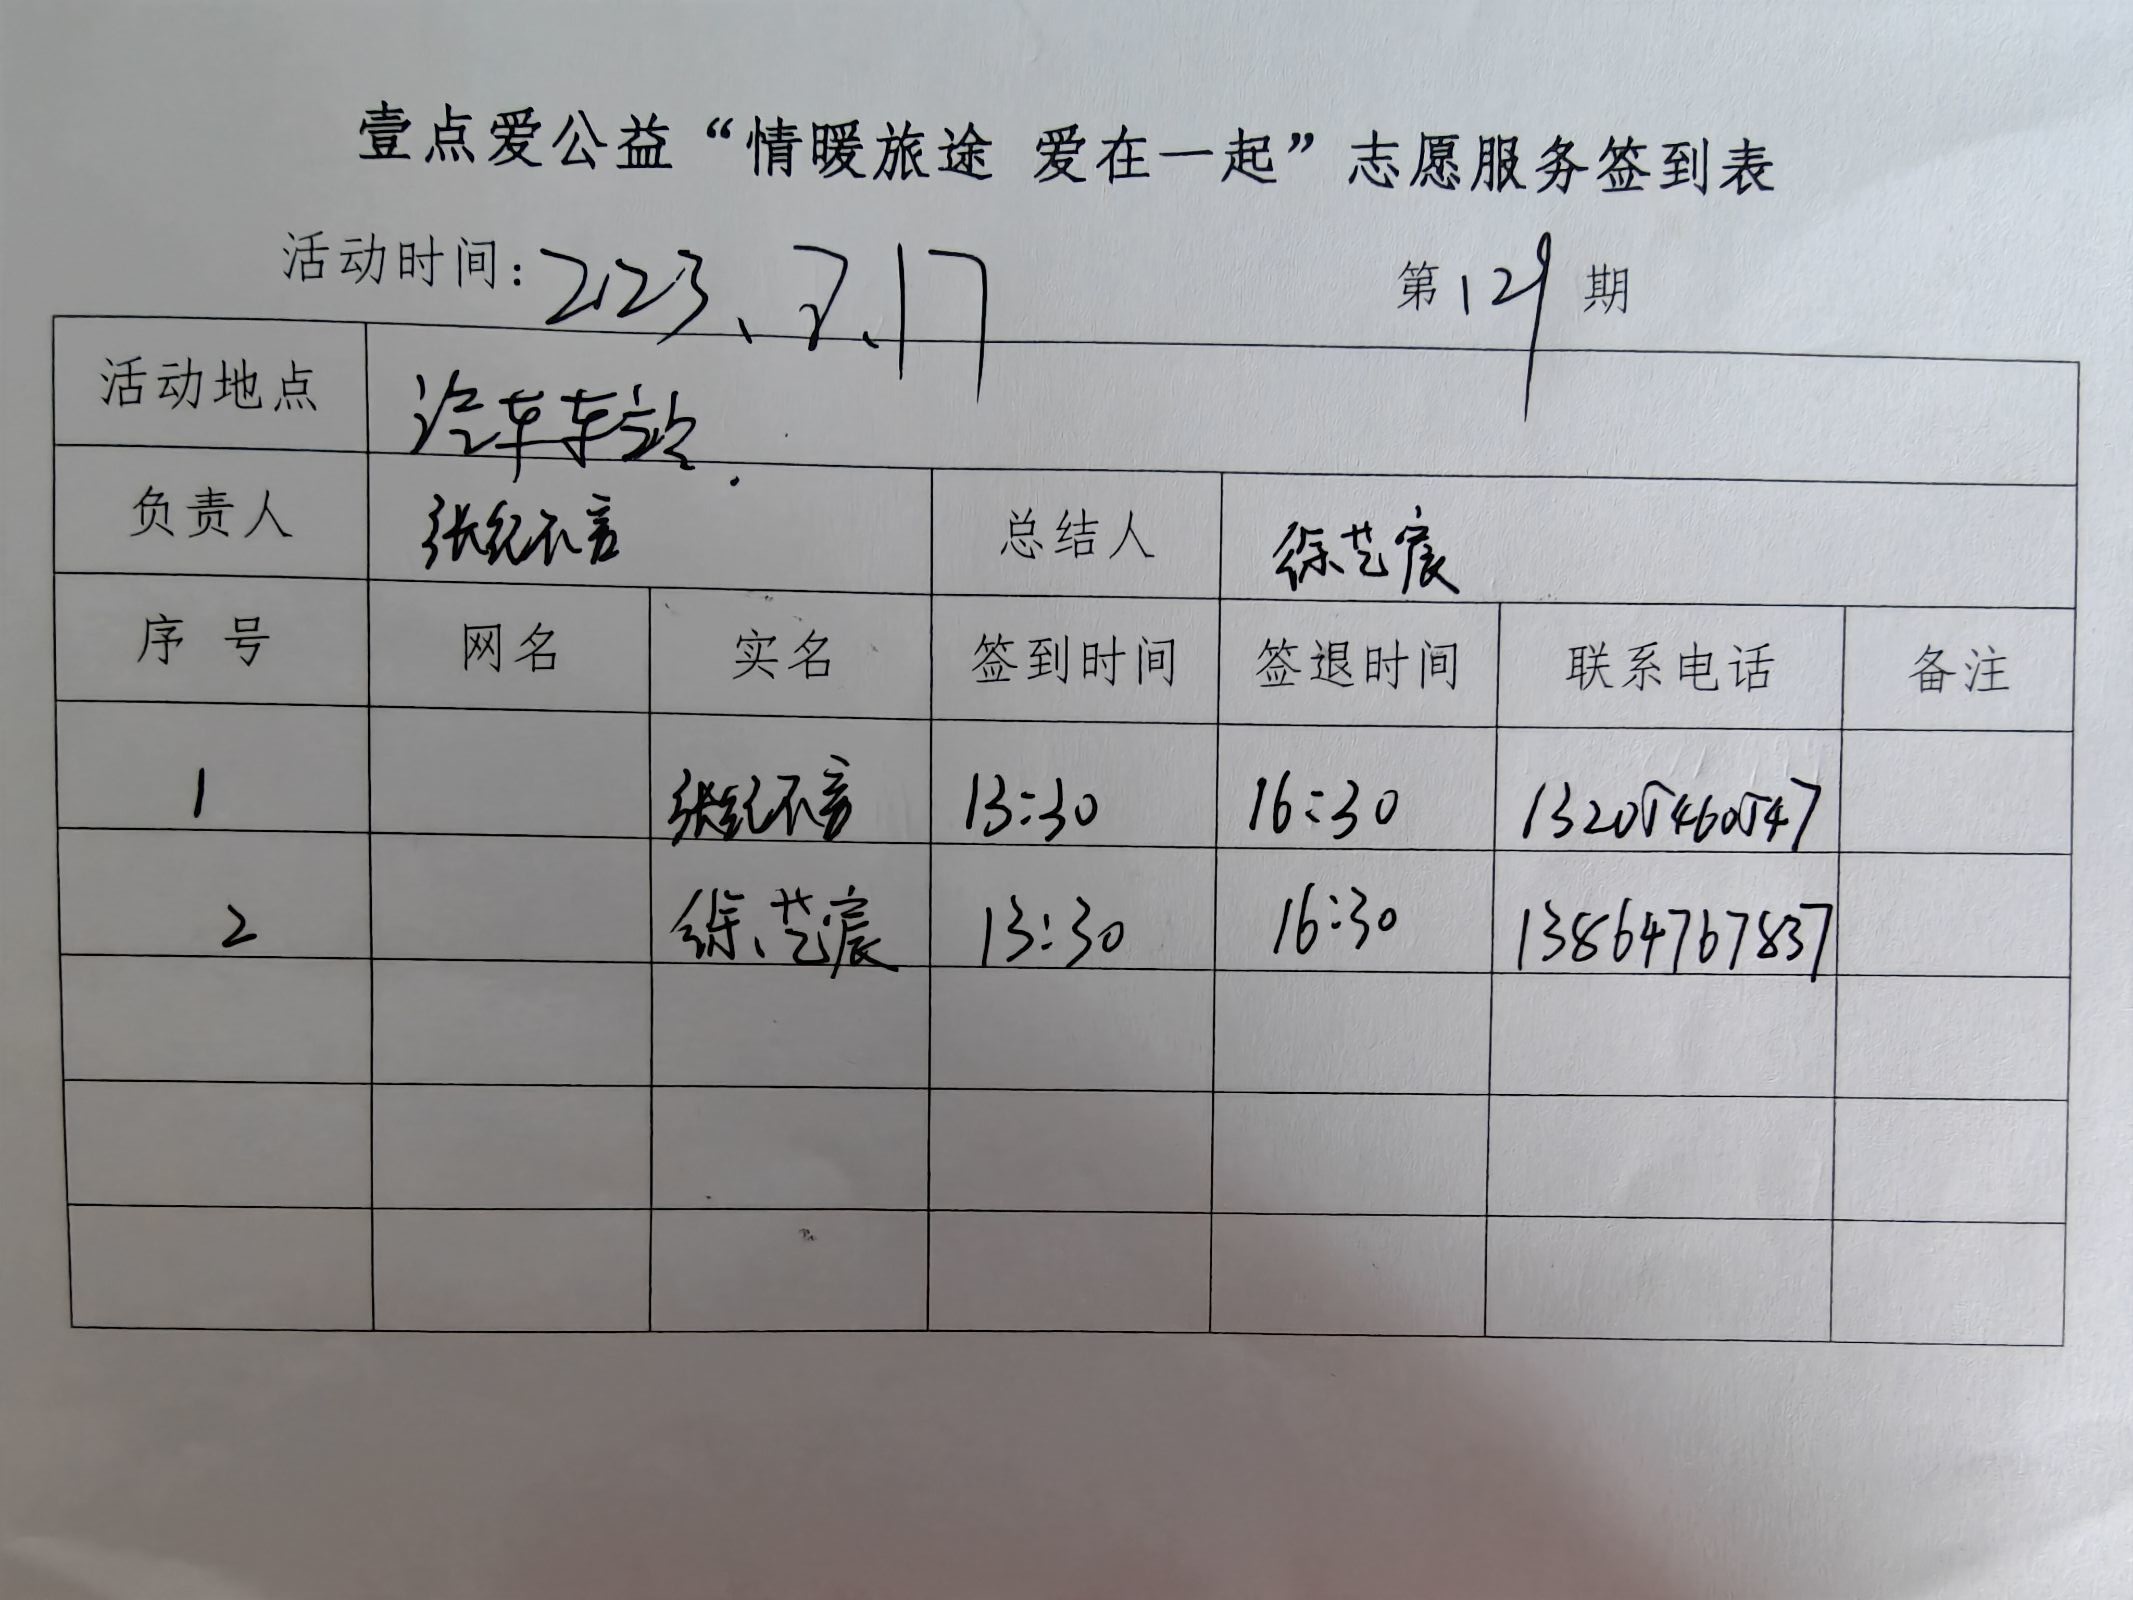 壹点爱公益“情暖旅途 爱在一起”志愿服务签到表
活动时间：2023、7、17 第129期
活动地点 汽车车站.
负责人 张纪不言 总结人 徐艺宸
序 号 网名 实名 签到时间 签退时间 联系电话 备注
1 张纪不言 13:30 16:30 13205460547
2 徐艺宸 13:30 16:30 13864767837